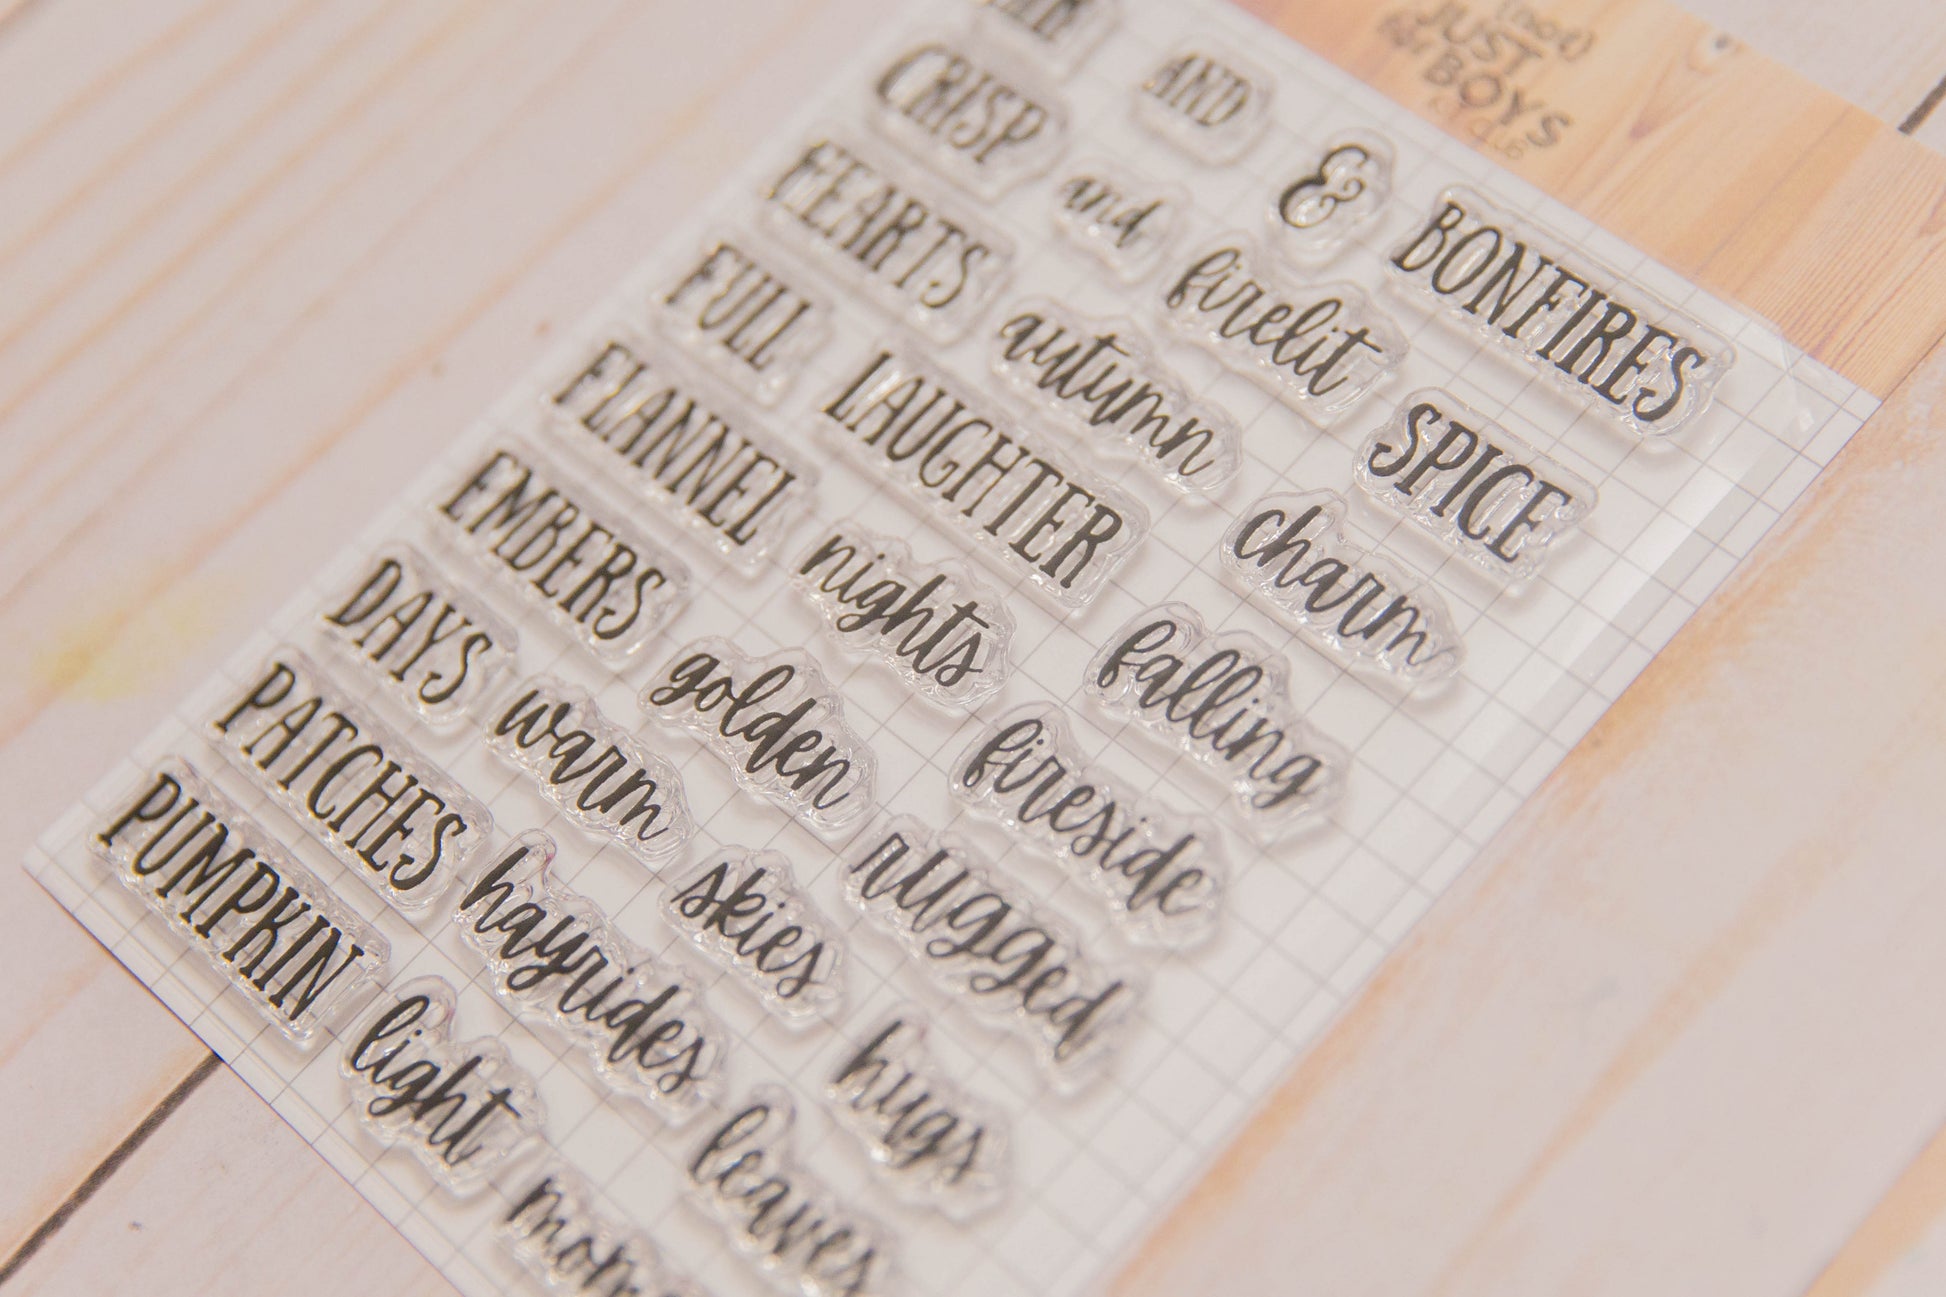 (not)
JUST
BOYS
CRISP AND & BONFIRES
HEARTS and firelit SPICE
FULL autumn charm
FLANNEL LAUGHTER falling
EMBERS nights fireside
DAYS golden rugged
PATCHES warm skies hugs
PUMPKIN hayrides leaves
light